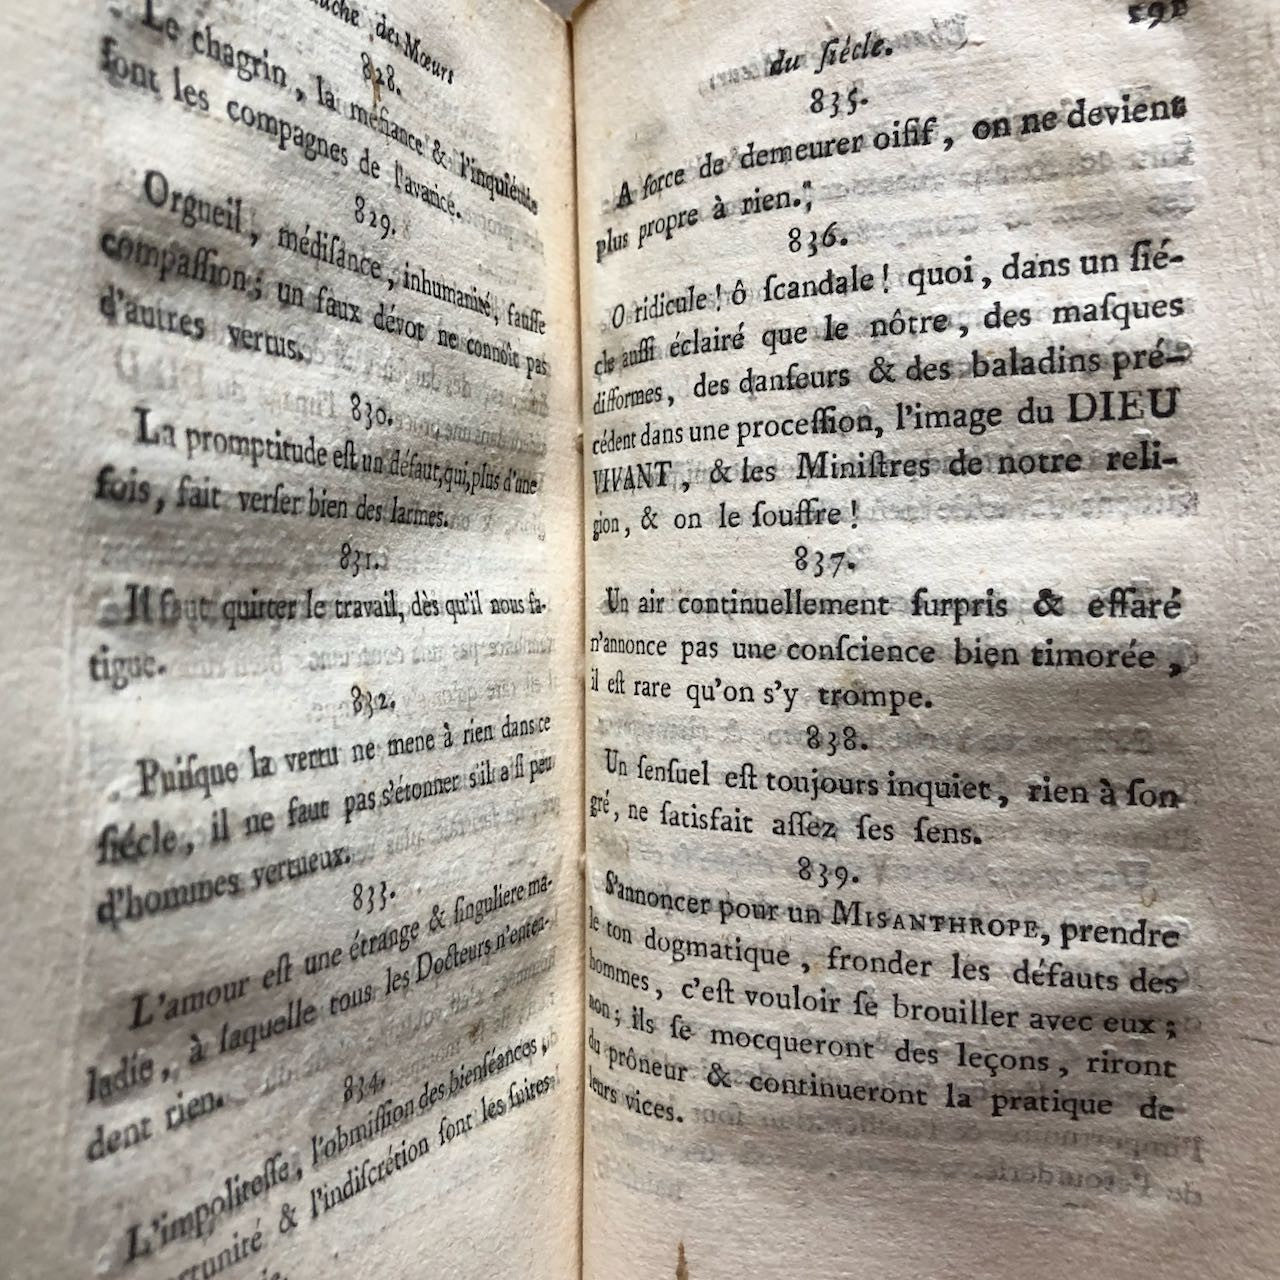 des Mœurs
828.
Le chagrin, la méfiance & l'inquiétude
ſont les compagnes de l'avarice.
829.
Orgueil, médiſance, inhumanité, fauſſe
compaſſion; un faux dévot ne connoît pas
d'autres vertus.
830.
La promptitude eſt un défaut, qui, plus d'une
fois, fait verſer bien des larmes.
831.
Il faut quitter le travail, dès qu'il nous fa-
tigue.
832.
Puiſque la vertu ne mene à rien dans ce
ſiécle, il ne faut pas s'étonner s'il a ſi peu
d'hommes vertueux.
833.
L'amour eſt une étrange & ſinguliere ma-
ladie, à laquelle tous les Docteurs n'enten-
dent rien.
834.
L'impoliteſſe, l'obmiſſion des bienſéances,
& l'indiſcrétion ſont les ſuites
du ſiécle.
835.
A force de demeurer oiſif, on ne devient
plus propre à rien.
836.
O ridicule! ô ſcandale! quoi, dans un ſié-
cle auſſi éclairé que le nôtre, des maſques
difformes, des danſeurs & des baladins pré-
cédent dans une proceſſion, l'image du DIEU
VIVANT, & les Miniſtres de notre reli-
gion, & on le ſouffre!
837.
Un air continuellement ſurpris & effaré
n'annonce pas une conſcience bien timorée,
il eſt rare qu'on s'y trompe.
838.
Un ſenſuel eſt toujours inquiet, rien à ſon
gré, ne ſatisfait aſſez ſes ſens.
839.
S'annoncer pour un MISANTHROPE, prendre
le ton dogmatique, fronder les défauts des
hommes, c'eſt vouloir ſe brouiller avec eux;
non; ils ſe mocqueront des leçons, riront
du prôneur & continueront la pratique de
leurs vices.